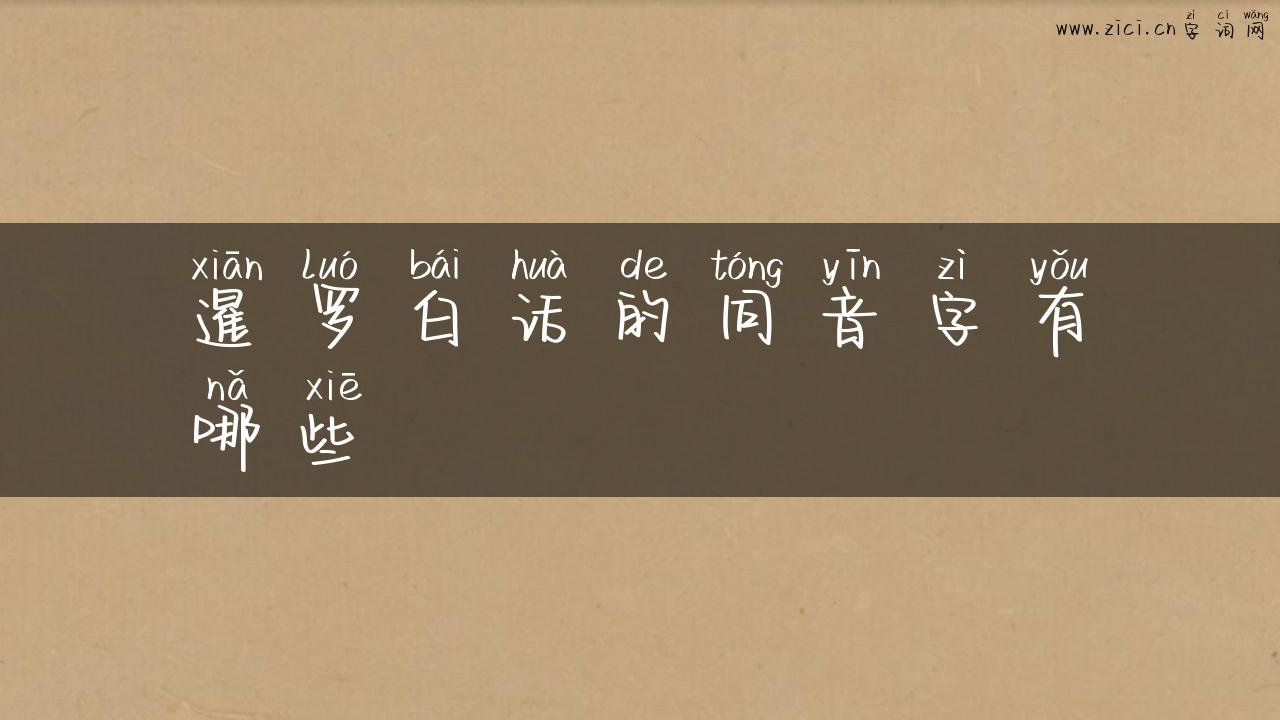 zì cí wǎng
www.zici.cn 字词网
xiān luó bái huà de tóng yīn zì yǒu
暹罗白话的同音字有
nǎ xiē
哪些